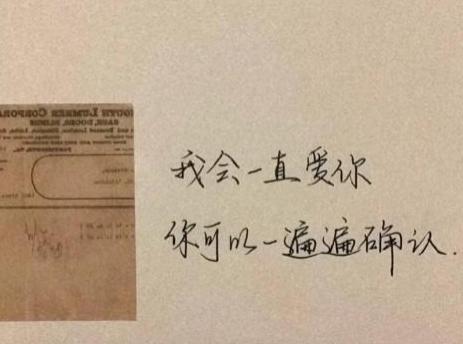 OUTH LUMBER CORPORA
SASH, DOORS, BLINDS
我会一直爱你
你可以一遍遍确认.